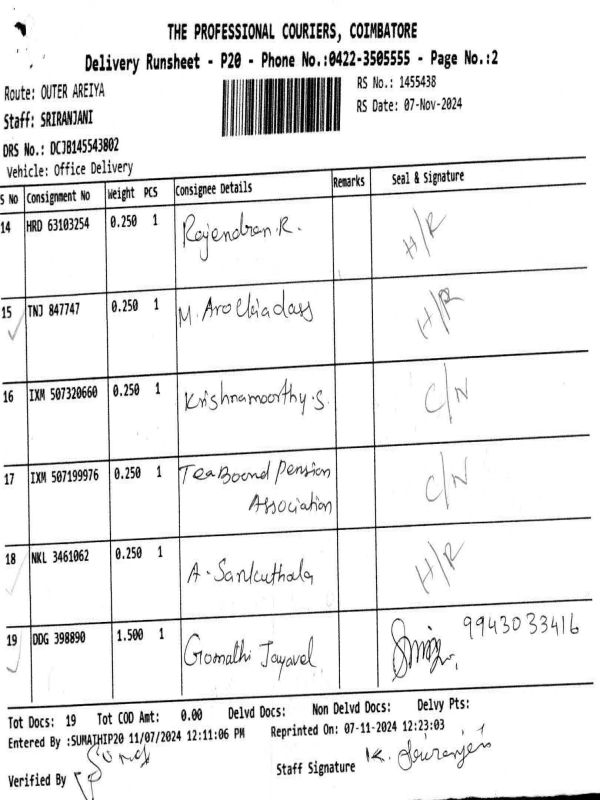 THE PROFESSIONAL COURIERS, COIMBATORE
Delivery Runsheet - P20 - Phone No.:0422-3505555 - Page No.:2
Route: OUTER AREIYA RS No.: 1455438
Staff: SRIRANJANI RS Date: 07-Nov-2024
DRS No.: DCJB145543802
Vehicle: Office Delivery
S No Consignment No Weight PCS Consignee Details Remarks Seal & Signature
14 HRD 63103254 0.250 1 Rajendran.R. H/R
15 TNJ 847747 0.250 1 M. Arockiadass H/R
16 IXM 507320660 0.250 1 Krishnamoorthy.S. C/N
17 IXM 507199976 0.250 1 Tea Board Pension C/N
Association
18 NKL 3461062 0.250 1 A. Sankuthala H/R
19 DDG 398890 1.500 1 Gomathi Jayavel 9943033416
Tot Docs: 19 Tot COD Amt: 0.00 Delvd Docs: Non Delvd Docs: Delvy Pts:
Entered By :SUMATHIP20 11/07/2024 12:11:06 PM Reprinted On: 07-11-2024 12:23:03
Verified By Staff Signature K.